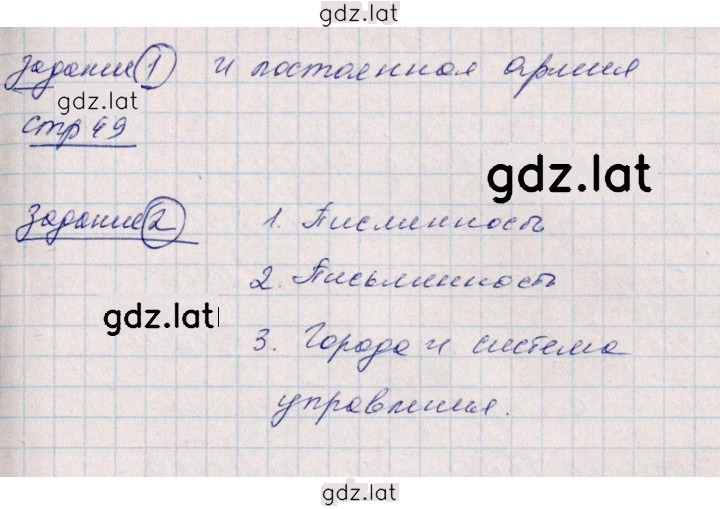 gdz.lat
Задание 1 и постоенная армия
gdz.lat
стр 49
gdz.lat
Задание 2 1. Писменность
2. Письменность
gdz.lat
3. Города и система
управления.
gdz.lat